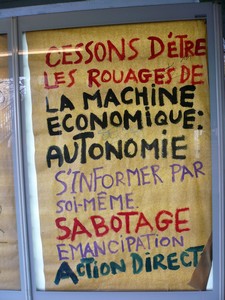 CESSONS D'ÊTRE
LES ROUAGES DE
LA MACHINE
ECONOMIQUE:
AUTONOMIE
S'INFORMER PAR
SOI-MÊME.
SABOTAGE
EMANCIPATION
ACTION DIRECT